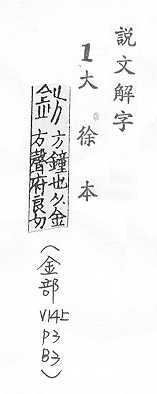 説文解字
1大徐本
鈁方鐘也从金
方聲府良切
(金部V14上P3B3)